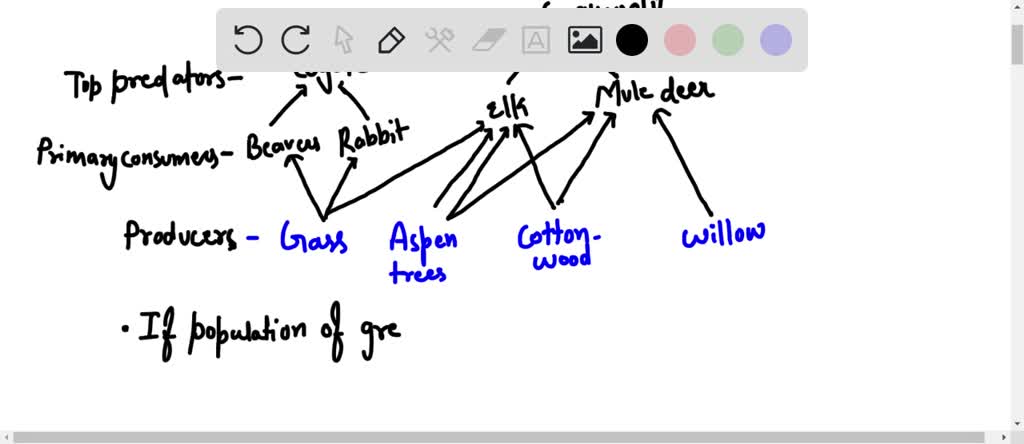 Top predators-
Elk
Mule deer
Primary consumers- Beavers Rabbit
Producers- Grass Aspen trees Cotton-wood willow
• If population of gre